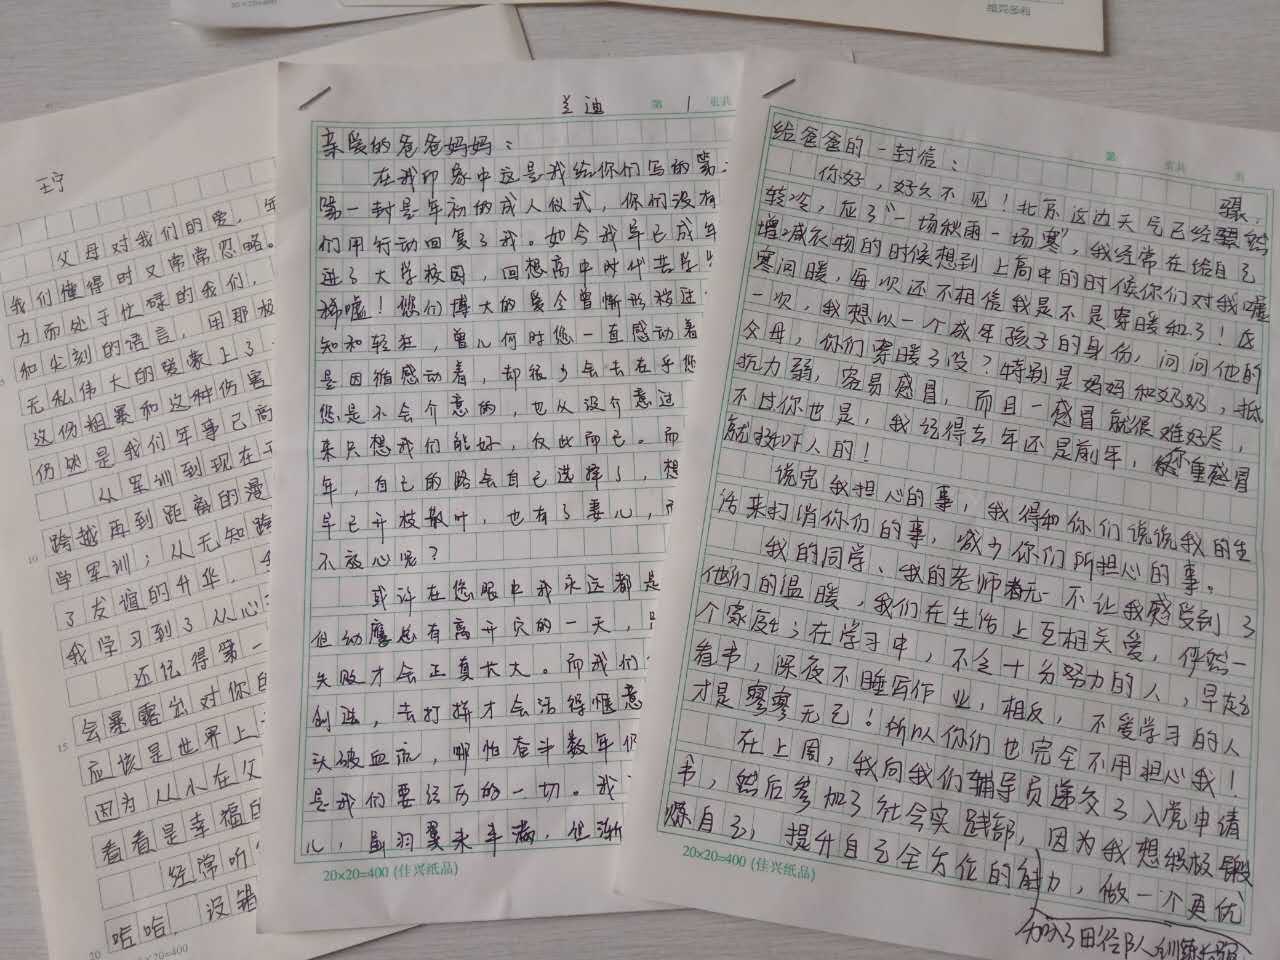 20×20=400
王宁
父母对我们的爱，年
我们懂得时又常常忽略。
力而处于忙碌的我们，
和尖刻的语言，用那极
无私伟大的爱蒙上了
这份粗暴和这种伤害
仍然是我们年事已高
从军训到现在
跨越再到距离的漫
学军训；从无知跨
了友谊的升华，
我学习到了从心
还记得第一
会暴露出对你的
应该是世界上
因为从小在父
看看是幸福的
经常听
哈哈，没错
20×20=400
兰迪
第 1 页共
亲爱的爸爸妈妈：
在我印象中这是我给你们写的第
第一封是年初的成人仪式，你们没有
们用行动回复了我。如今我早已成年
进了大学校园，回想高中时代苦学
唏嘘！您们博大的爱令曾惭形秽过
知和轻狂，曾几何时您一直感动着
是因循感动着，却很少会去在乎您
您是不会介意的，也从没介意过
来只想我们能好，仅此而已。而
年，自己的路会自己选择了，想
早已开枝散叶，也有了妻儿，
不放心呢？
或许在您眼中我永远都是
但幼鹰总有离开穴的一天，
失败才会正真长大。而我们
创造，去打拼才会活得惬意
头破血流，哪怕奋斗数年仍
是我们要经历的一切。我
儿，虽羽翼未丰满，但渐
20×20=400 (佳兴纸品)
第 页共 页
给爸爸的一封信：
你好，好久不见！北京这边天气已经骤
转冷，应了“一场秋雨一场寒”，我经常在给自己
增减衣物的时候想到上高中的时候你们对我嘘
寒问暖，每次还不相信我是不是穿暖和了！这
一次，我想以一个成年孩子的身份，问问他的
父母，你们穿暖了没？特别是妈妈和奶奶，抵
抗力弱，容易感冒，而且一感冒就很难好尽，
不过你也是，我记得去年还是前年，你重感冒
就挺吓人的！
说完我担心的事，我得和你们说说我的生
活来打消你们的事，减少你们所担心的事。
我的同学、我的老师都无一不让我感受到了
他们的温暖，我们在生活上互相关爱，俨然一
个家庭；在学习中，不乏十分努力的人，早起
看书，深夜不睡写作业，相反，不爱学习的人
才是寥寥无已！所以你们也完全不用担心我！
在上周，我向我们辅导员递交了入党申请
书，然后参加了社会实践部，因为我想积极锻
炼自己，提升自己全方位的能力，做一个更优
加入了田径队训练
20×20=400 (佳兴纸品)